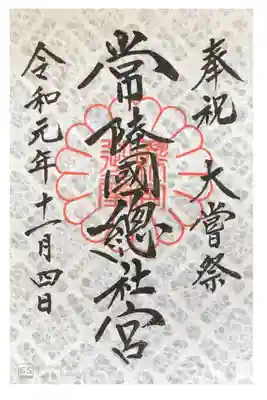 奉祝 大嘗祭
常陸國總社宮
令和元年十一月四日